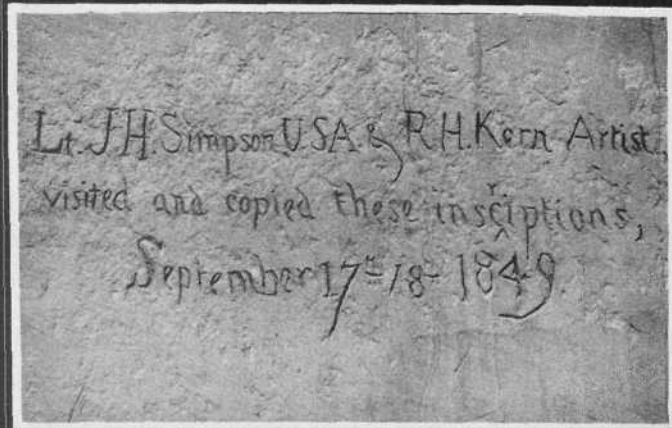 Lt. J.H. Simpson U.S.A. & R.H. Kern Artist,
visited and copied these inscriptions,
September 17th 18th 1849.